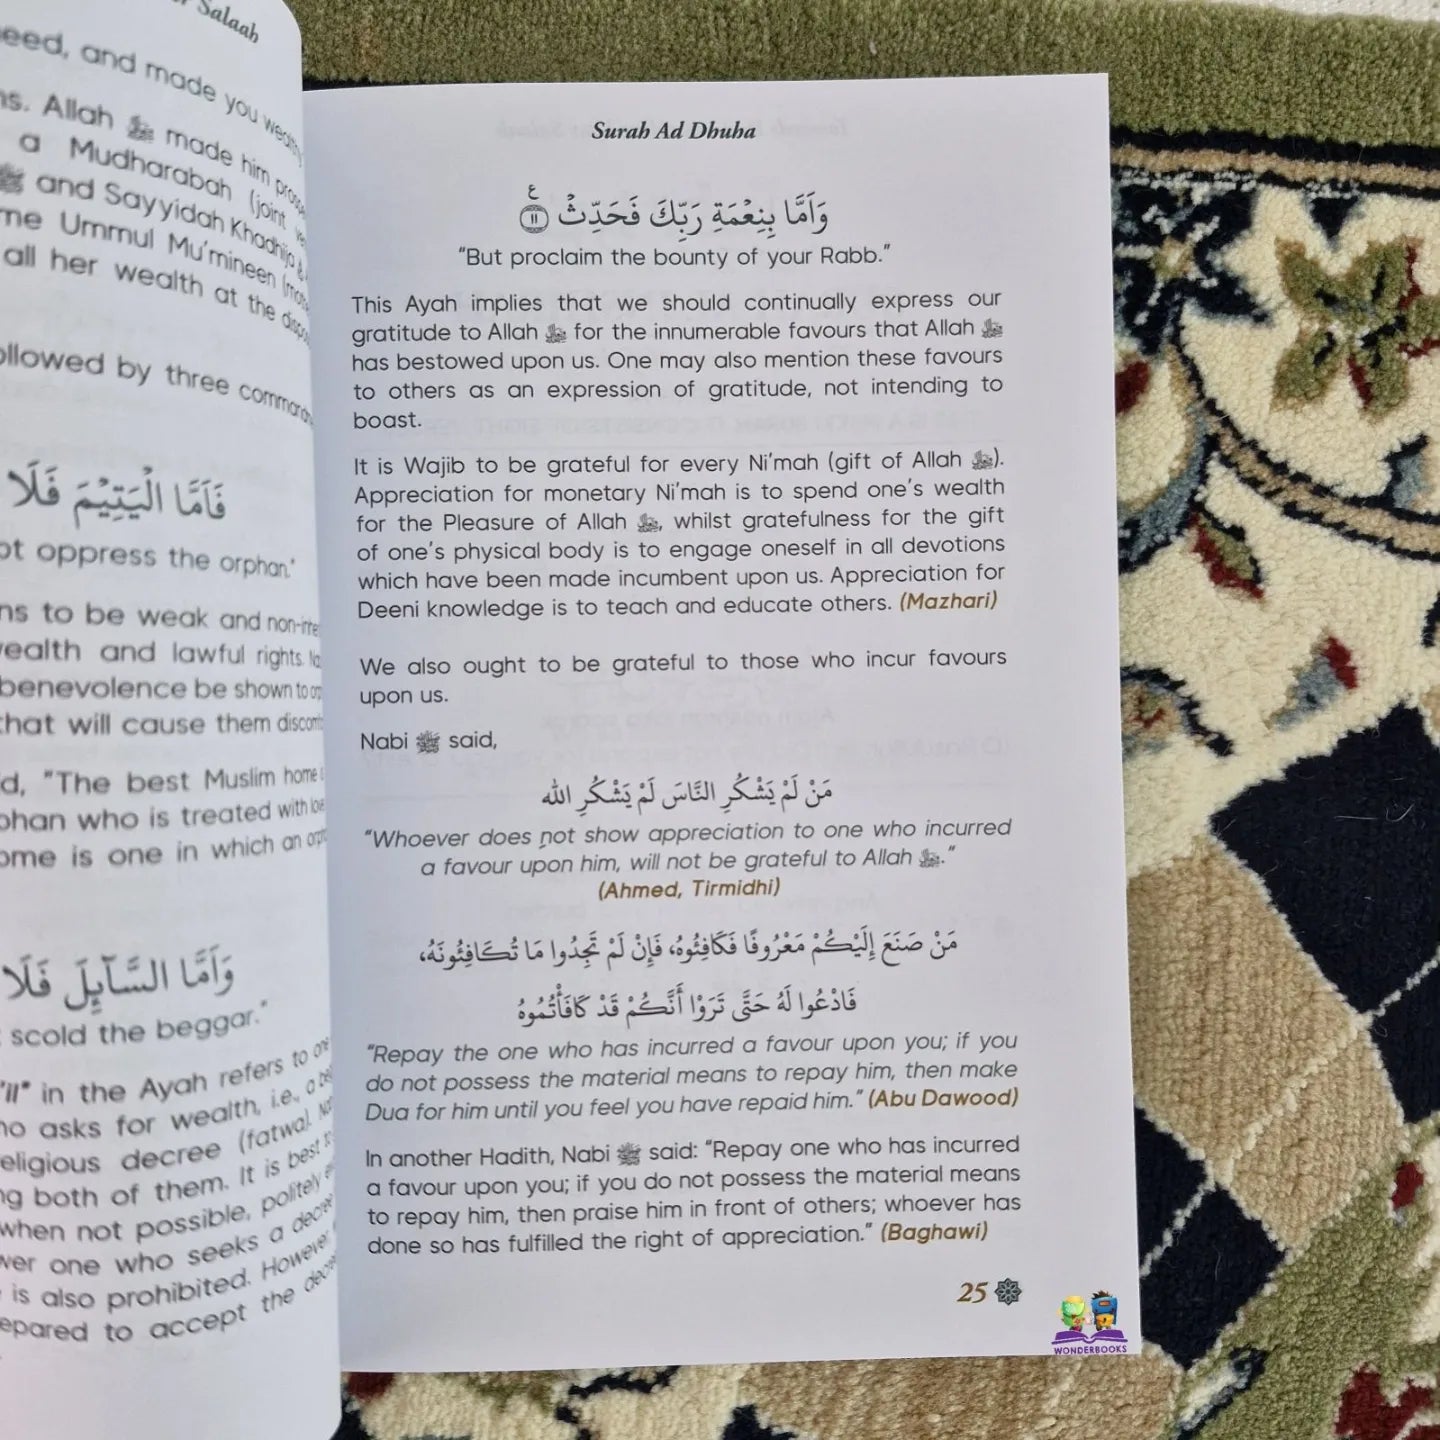 Salaah
need, and made you wealthy
Allah ﷻ made him
a Mudharabah (joint
ﷺ and Sayyidah Khadhija
Ummul Mu'mineen
all her wealth at the
followed by three
فَاَمَّا الْيَتِيْمَ فَلَا
oppress the orphan."
to be weak and
and lawful rights.
benevolence be shown to
that will cause them
"The best Muslim home
who is treated with
is one in which an
وَاَمَّا السَّآئِلَ فَلَا
scold the beggar."
in the Ayah refers to one
asks for wealth, i.e., a
decree (fatwa).
both of them. It is best
when not possible, politely
one who seeks a decree
is also prohibited. However,
to accept the
Surah Ad Dhuha
وَاَمَّا بِنِعْمَةِ رَبِّكَ فَحَدِّثْ ۝١١ ع
"But proclaim the bounty of your Rabb."
This Ayah implies that we should continually express our
gratitude to Allah ﷻ for the innumerable favours that Allah ﷻ
has bestowed upon us. One may also mention these favours
to others as an expression of gratitude, not intending to
boast.
It is Wajib to be grateful for every Ni'mah (gift of Allah ﷻ).
Appreciation for monetary Ni'mah is to spend one's wealth
for the Pleasure of Allah ﷻ, whilst gratefulness for the gift
of one's physical body is to engage oneself in all devotions
which have been made incumbent upon us. Appreciation for
Deeni knowledge is to teach and educate others. (Mazhari)
We also ought to be grateful to those who incur favours
upon us.
Nabi ﷺ said,
مَنْ لَمْ يَشْكُرِ النَّاسَ لَمْ يَشْكُرِ الله
"Whoever does not show appreciation to one who incurred
a favour upon him, will not be grateful to Allah ﷻ."
(Ahmed, Tirmidhi)
مَنْ صَنَعَ إِلَيْكُمْ مَعْرُوفًا فَكَافِئُوهُ، فَإِنْ لَمْ تَجِدُوا مَا تُكَافِئُونَهُ،
فَادْعُوا لَهُ حَتَّى تَرَوْا أَنَّكُمْ قَدْ كَافَأْتُمُوهُ
"Repay the one who has incurred a favour upon you; if you
do not possess the material means to repay him, then make
Dua for him until you feel you have repaid him." (Abu Dawood)
In another Hadith, Nabi ﷺ said: "Repay one who has incurred
a favour upon you; if you do not possess the material means
to repay him, then praise him in front of others; whoever has
done so has fulfilled the right of appreciation." (Baghawi)
25
WONDERBOOKS